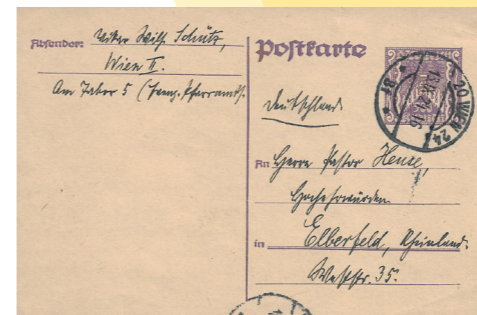 Absender: Vikar Wilh. Schütz,
Wien II.
Am Tabor 5 (Evang. Pfarramt).
Postkarte
Deutschland.
20 WIEN 24
An Herrn Pastor Heuse,
Hochehrwürden
in Elberfeld, Rheinland.
Weststr. 35.